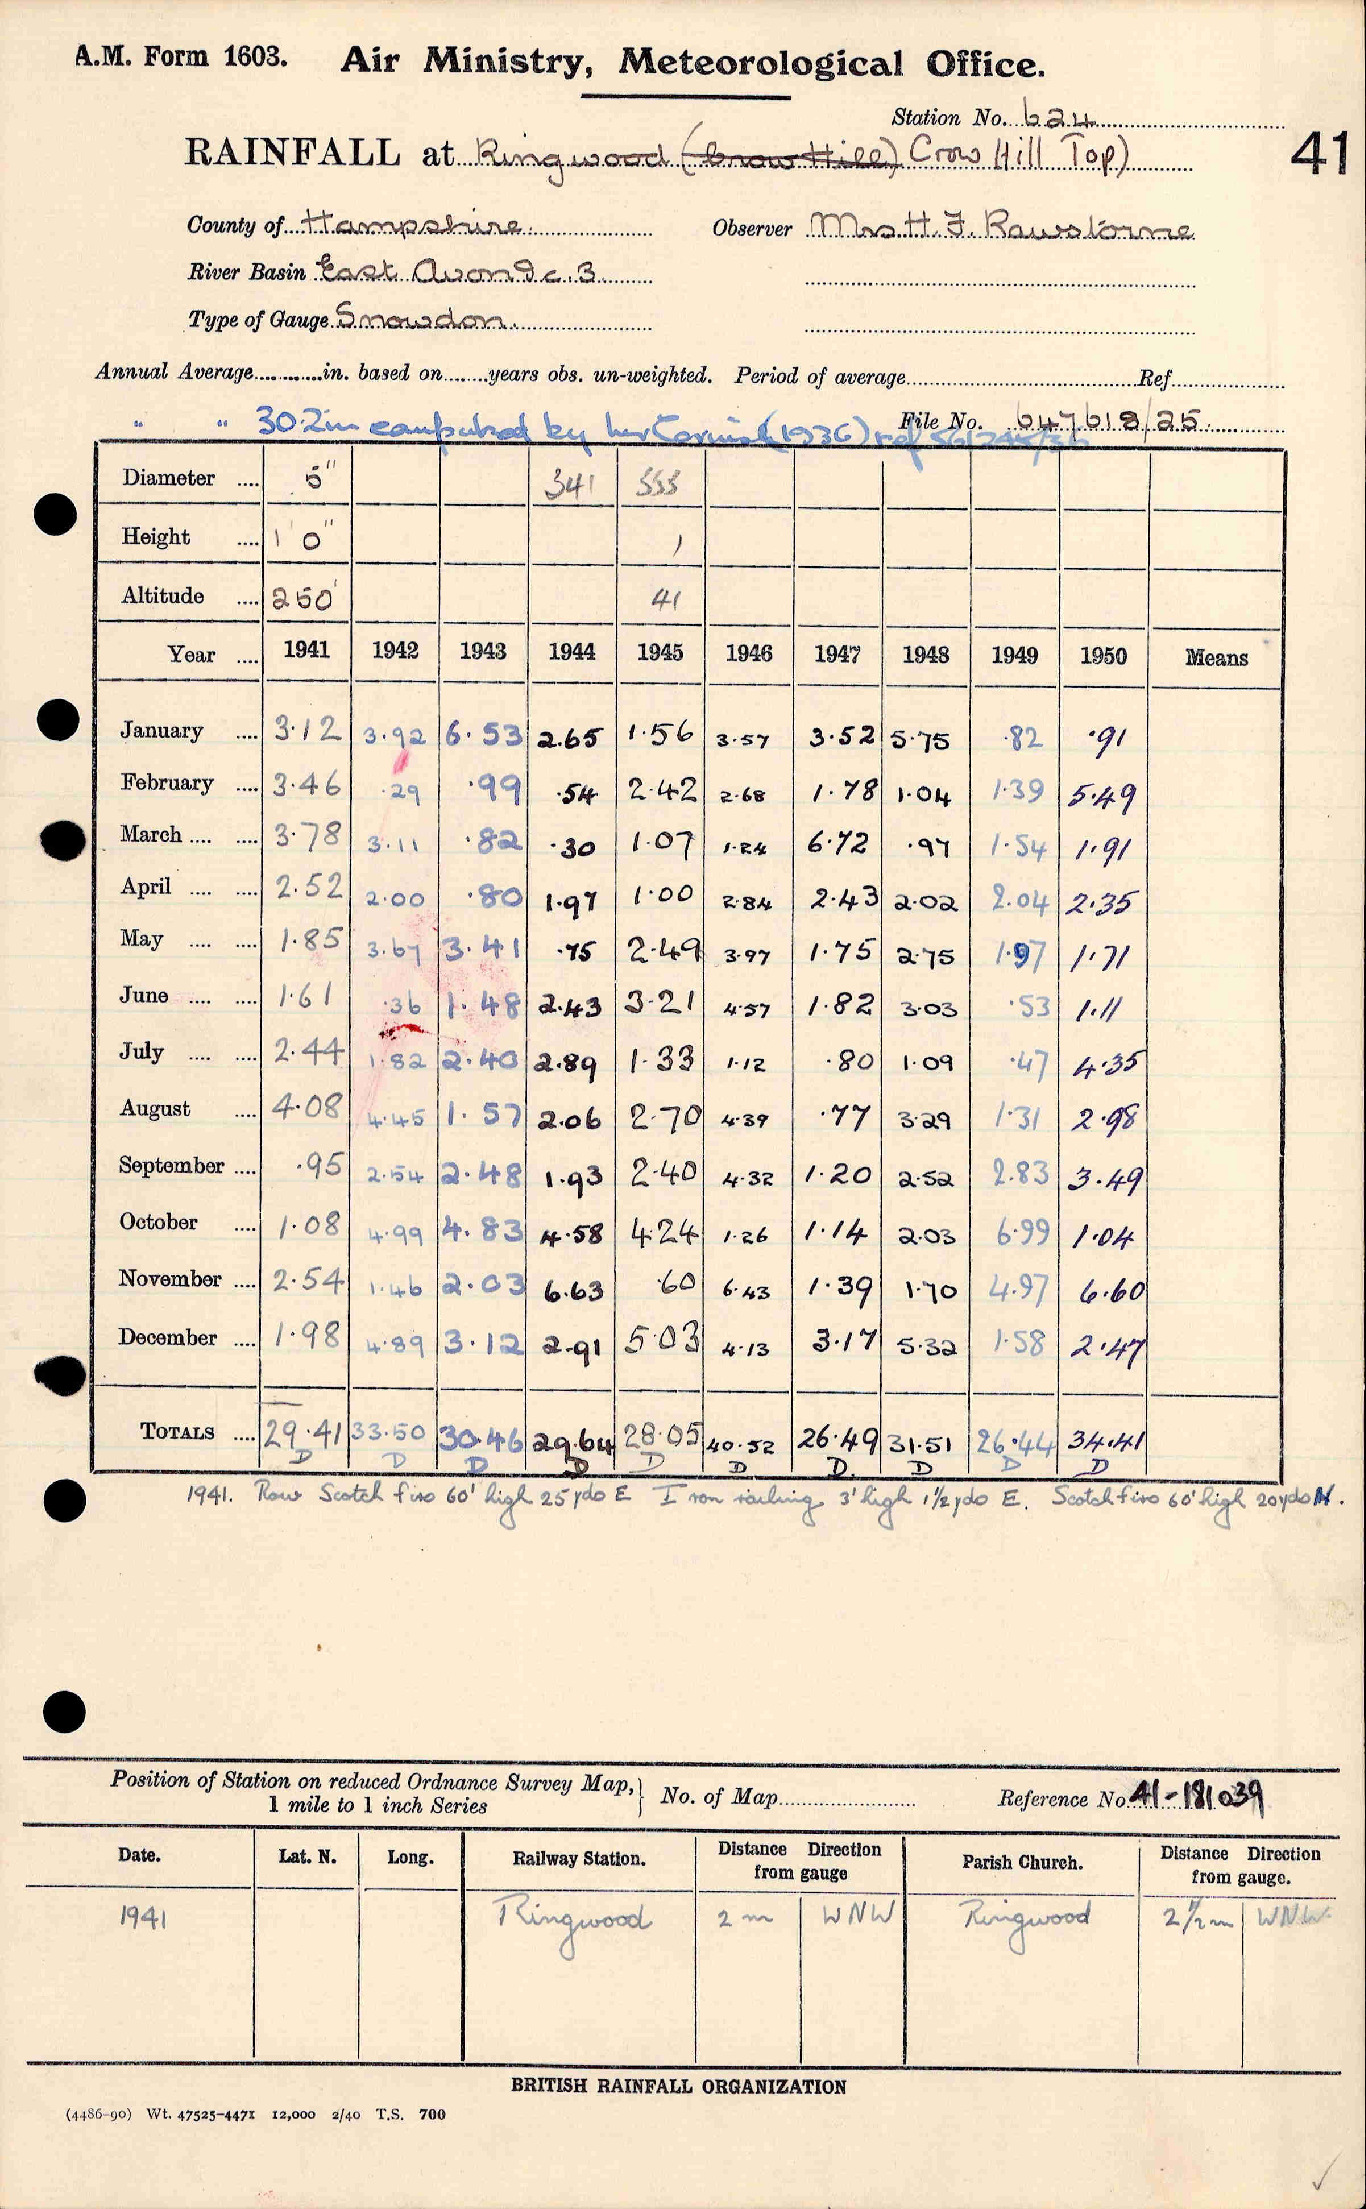 A.M. Form 1603. Air Ministry, Meteorological Office.
Station No. 624
RAINFALL at Ringwood (Crow Hill) Crow Hill Top)
41
County of Hampshire Observer Mrs H. F. Rawstorne
River Basin East Avon &c. 3
Type of Gauge Snowdon
Annual Average............in. based on........years obs. un-weighted. Period of average........Ref........
" " 30.2in computed by (1936) ref File No. 647618/25
Diameter .... 5" 341 555
Height .... 1' 0" 1
Altitude .... 250' 41
Year .... 1941 1942 1943 1944 1945 1946 1947 1948 1949 1950 Means
January .... 3.12 3.92 6.53 2.65 1.56 3.57 3.52 5.75 .82 .91
February .... 3.46 .29 .99 .54 2.42 2.68 1.78 1.04 1.39 5.49
March .... .... 3.78 3.11 .82 .30 1.07 1.24 6.72 .97 1.54 1.91
April .... .... 2.52 2.00 .80 1.97 1.00 2.84 2.43 2.02 2.04 2.35
May .... .... 1.85 3.67 3.41 .75 2.49 3.97 1.75 2.75 1.97 1.71
June .... .... 1.61 .36 1.48 2.43 3.21 4.57 1.82 3.03 .53 1.11
July .... .... 2.44 1.82 2.40 2.89 1.33 1.12 .80 1.09 .47 4.35
August .... 4.08 4.45 1.57 2.06 2.70 4.39 .77 3.29 1.31 2.98
September .... .95 2.54 2.48 1.93 2.40 4.32 1.20 2.52 2.83 3.49
October .... 1.08 4.99 4.83 4.58 4.24 1.26 1.14 2.03 6.99 1.04
November .... 2.54 1.46 2.03 6.63 .60 6.43 1.39 1.70 4.97 6.60
December .... 1.98 4.89 3.12 2.91 5.03 4.13 3.17 5.32 1.58 2.47
TOTALS .... 29.41 33.50 30.46 29.64 28.05 40.52 26.49 31.51 26.44 34.41
D D D D D D D. D D D
1941. Row Scotch firs 60' high 25 yds E Iron railing 3' high 1½ yds E. Scotch firs 60' high 20 yds N.
Position of Station on reduced Ordnance Survey Map, } No. of Map........ Reference No. 41-181039
1 mile to 1 inch Series
Date. Lat. N. Long. Railway Station. Distance Direction from gauge Parish Church. Distance Direction from gauge.
1941 Ringwood 2 m WNW Ringwood 2½ m WNW
BRITISH RAINFALL ORGANIZATION
(4486-90) Wt. 47525-4471 12,000 2/40 T.S. 700